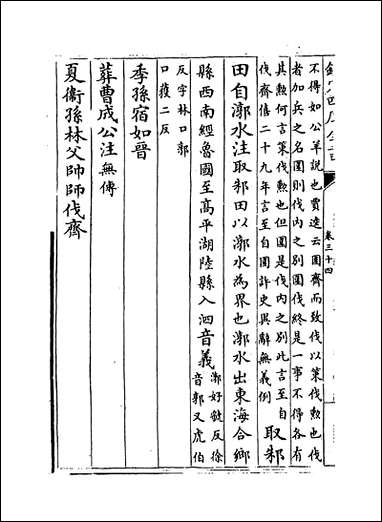 卷三十四
不得如公羊說也賈逵云圍齊而致伐以策伐勲也伐
者加兵之名圍則伐内之别圍伐終是一事不得各有
其勲何言策伐勲也但圍是伐内之别此言至自
伐齊僖二十九年言至自圍許史異辭無義例
取邾
田自漷水注取邾田以漷水為界也漷水出東海合鄉
縣西南經魯國至高平湖陸縣入泗音義
漷好虢反徐
音郭又虎伯
反字林口郭
口獲二反
季孫宿如晉
葬曹成公注無傳
夏衛孫林父帥師伐齊